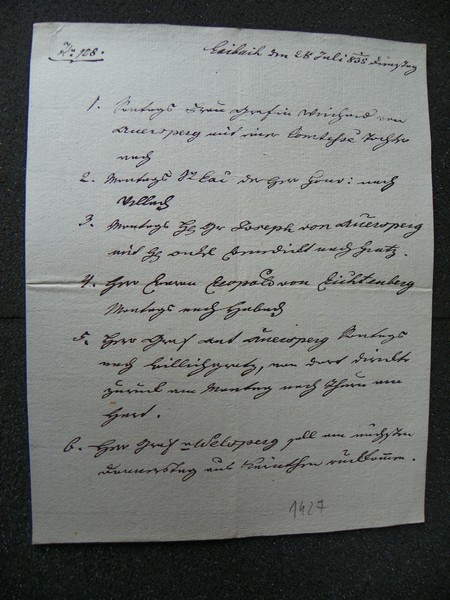 No 108.
Laibach den 28 Juli 835 Dienstag
1. Sontags Frau Grafin Weichard von
Auersperg mit einer Comtesse Tochter
nach
2. Montags der Herr nach
Villach
3. Montags H Gr Joseph von Auersperg
mit H onkel Benedickt nach Gratz.
4. Herr Baron Leopold von Lichtenberg
Montags nach Habach
5. Herr Graf Ant Auersperg Sontags
nach Billichgratz, von dort direkte
zurück am Montag nach Thurn am
Hart.
6. Herr Graf v Welsperg soll am nächsten
Donnerstag aus Kärnthen rückkomm.
1427